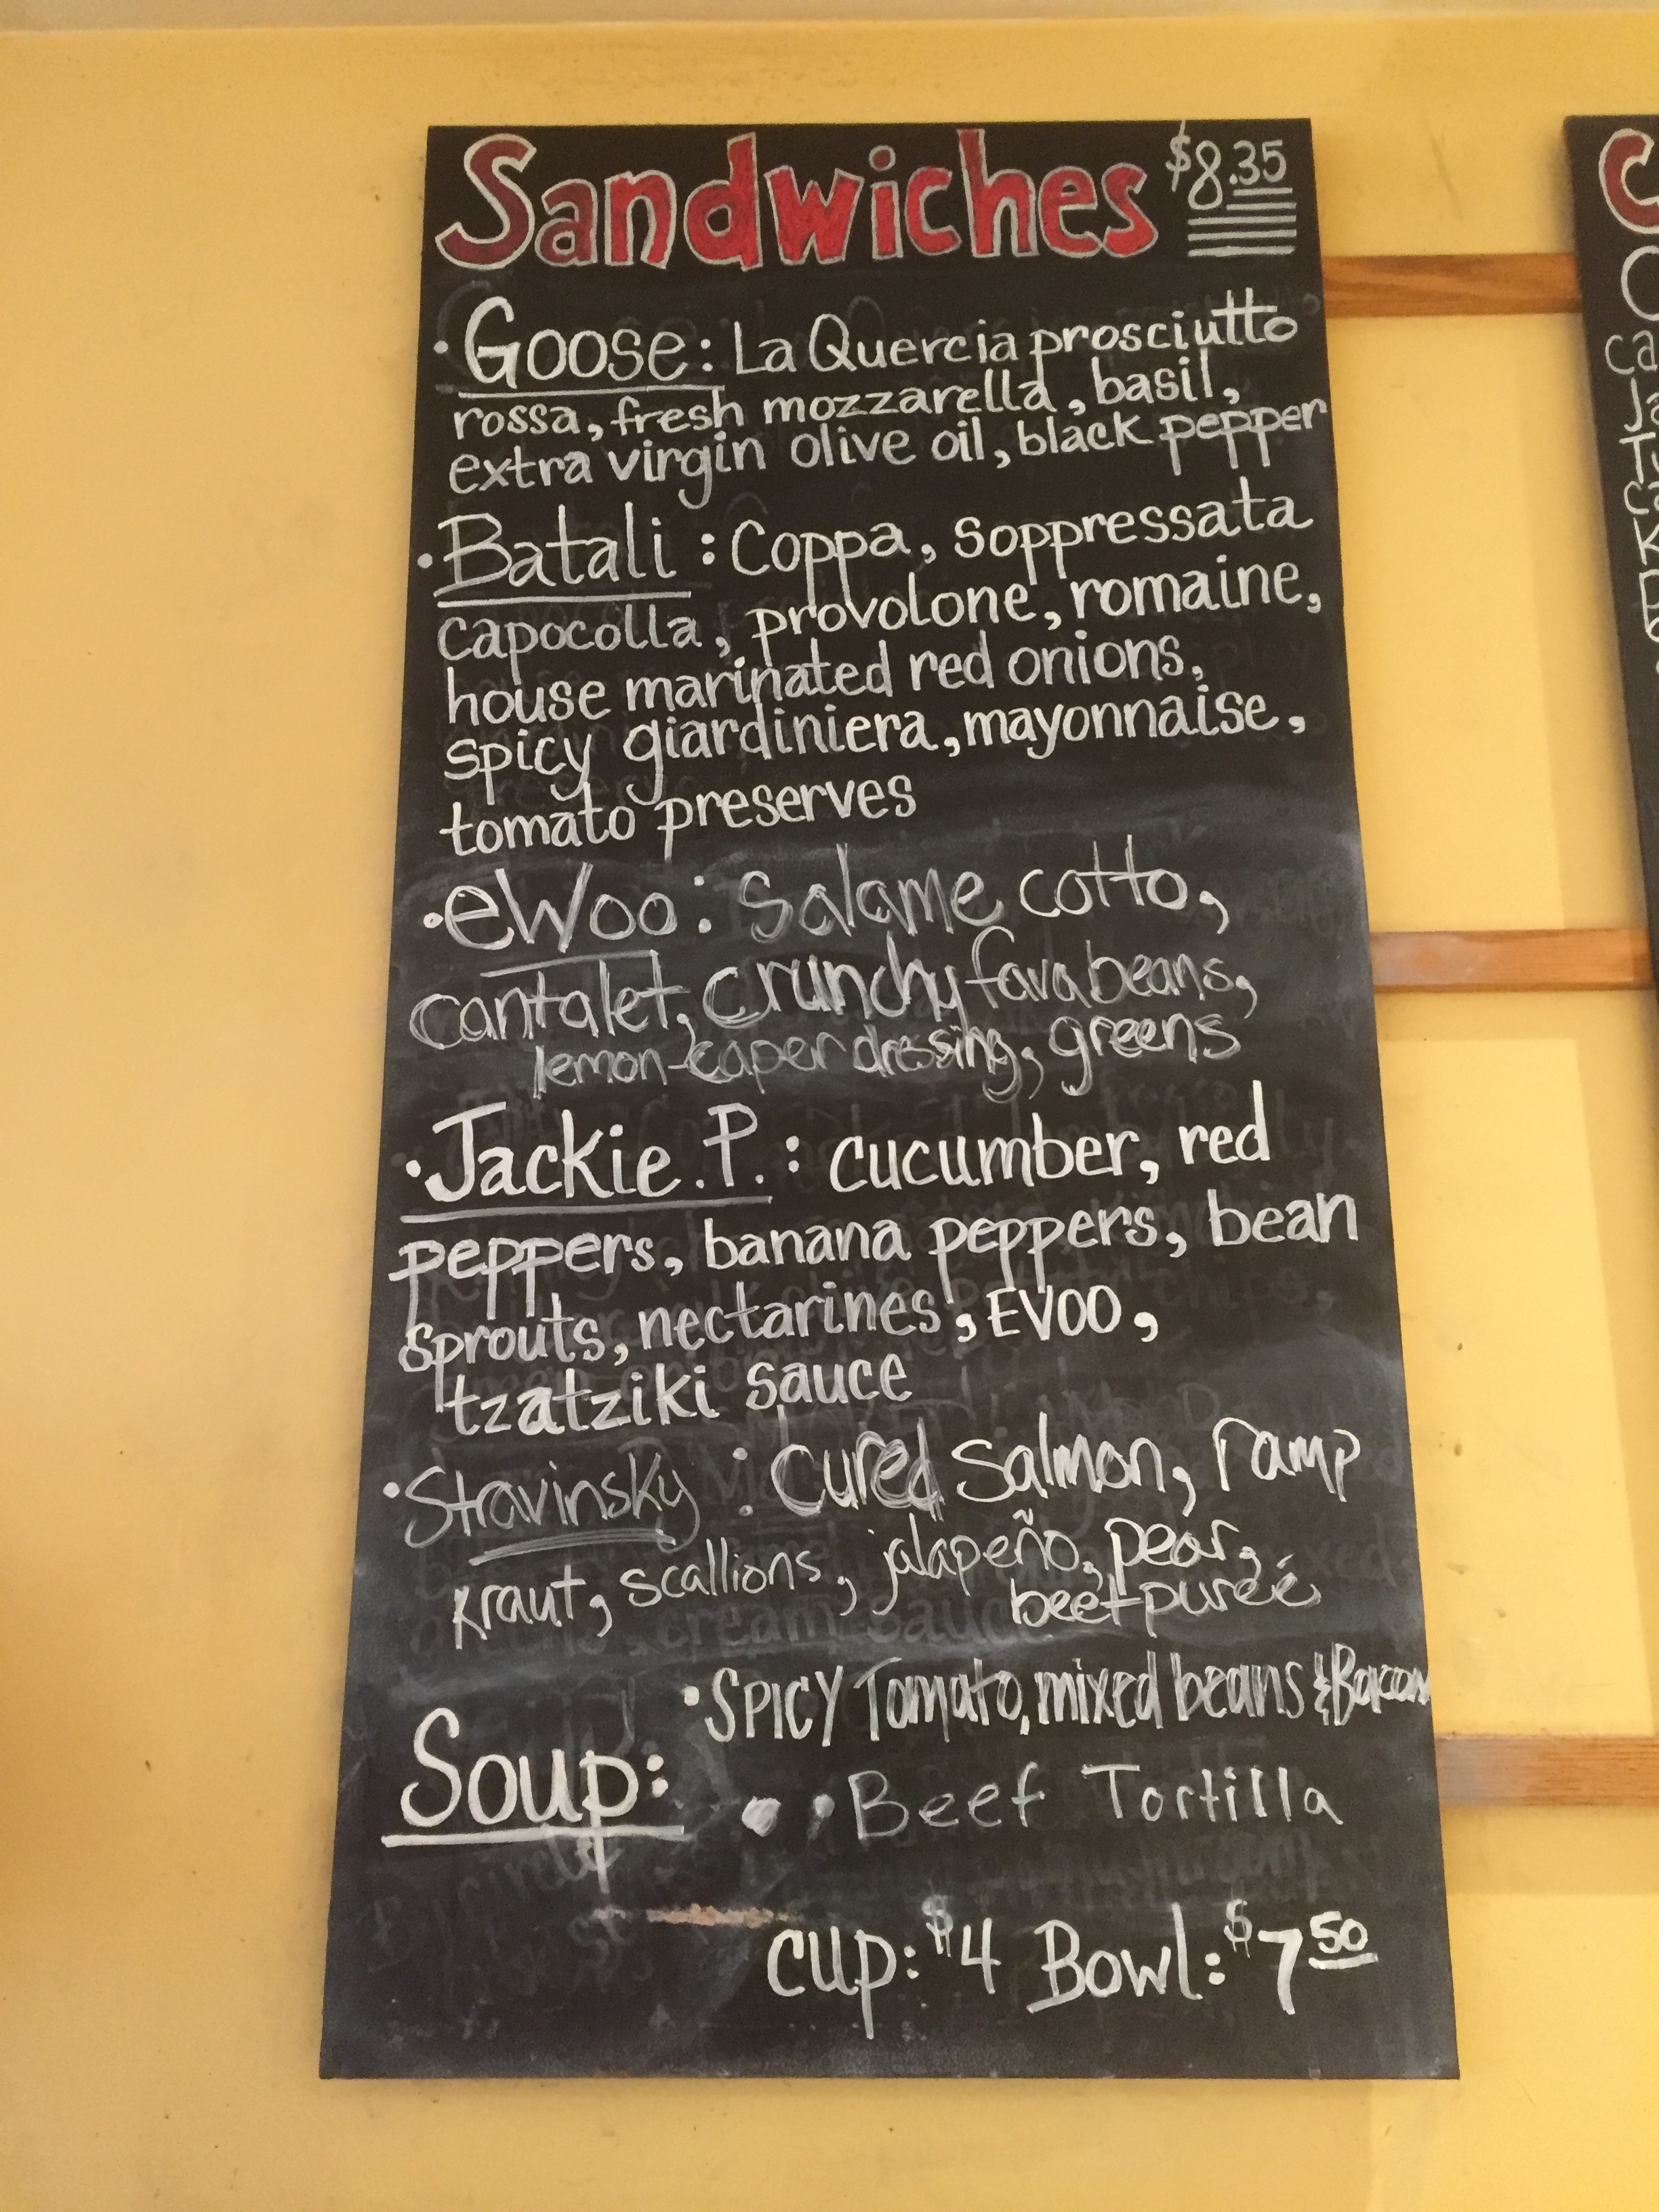 Sandwiches $8.35
• Goose: La Quercia prosciutto
rossa, fresh mozzarella, basil,
extra virgin olive oil, black pepper
• Batali: Coppa, Soppressata
capocolla, provolone, romaine,
house marinated red onions,
spicy giardiniera, mayonnaise,
tomato preserves
• eWoo: Salame cotto,
cantalet, crunchy fava beans,
lemon-caper dressing, greens
• Jackie.P.: cucumber, red
peppers, banana peppers, bean
sprouts, nectarines, EVOO,
tzatziki sauce
• Stravinsky: Cured Salmon, ramp
kraut, scallions, jalapeño, pear,
beet pureé
Soup:
• SPICY Tomato, mixed beans & Bacon
• Beef Tortilla
cup: $4 Bowl: $7 50